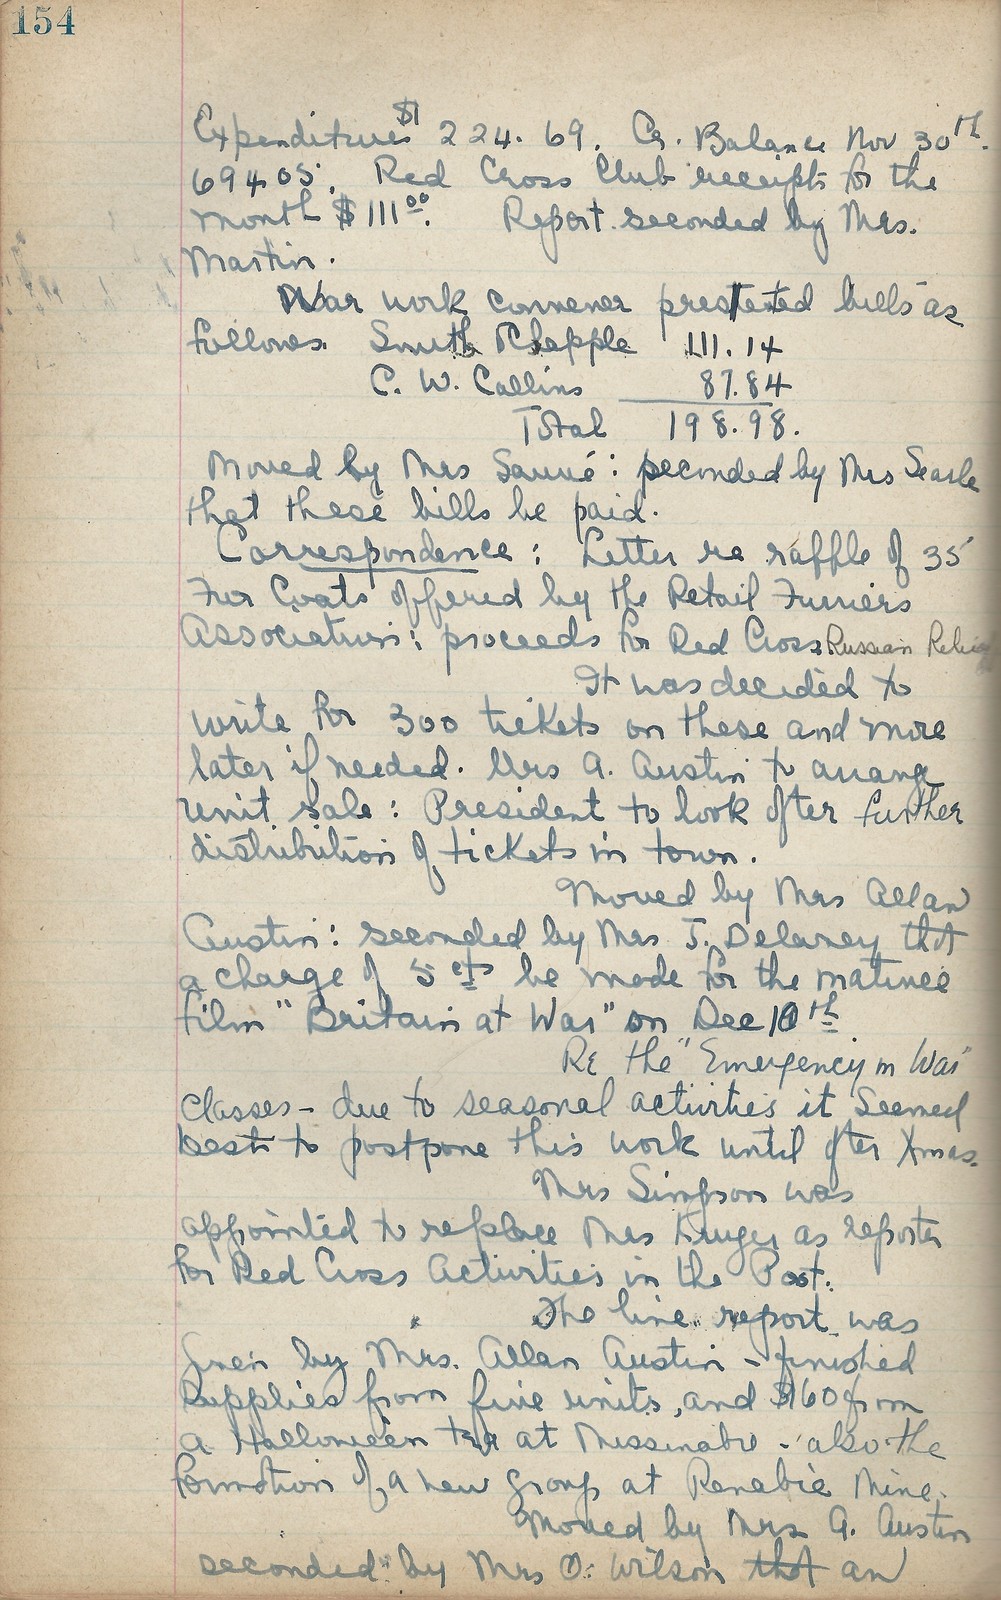 154
Expenditures $1224.69. Cr. Balance Nov 30th.
694.05. Red Cross Club receipts for the
month $111.00. Report seconded by Mrs.
Martin.
War work convener presented bills as
follows. Smith & Chapple 111.14
C. W. Collins 87.84
Total 198.98.
Moved by Mrs Sauvé: seconded by Mrs Searle
that these bills be paid.
Correspondence: Letter re raffle of 35
Fur Coats offered by the Retail Furriers
Association: proceeds for Red Cross Russian Relief
It was decided to
write for 300 tickets on these and more
later if needed. Mrs A. Austin to arrange
unit sale: President to look after further
distribution of tickets in town.
Moved by Mrs Allan
Austin: seconded by Mrs J. Delaney that
a charge of 5 cts be made for the matinee
film "Britain at War" on Dec 10th
Re the "Emergency in War"
classes - due to seasonal activities it seemed
best to postpone this work until after Xmas.
Mrs Simpson was
appointed to replace Mrs Kruger as reporter
for Red Cross Activities in the Post.
The line report was
given by Mrs. Allan Austin - finished
supplies from five units, and $160 from
a Halloween tea at Missinabie - also the
formation of a new group at Renabie Mine.
Moved by Mrs A. Austin
seconded by Mrs O. Wilson that an